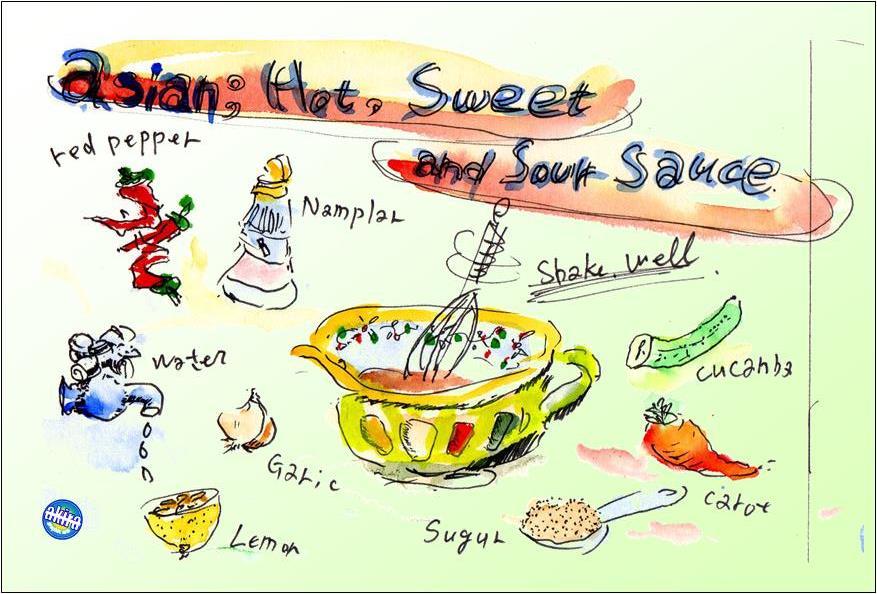 asian; Hot, Sweet
and Sour Sauce
red pepper
Namplar
Shake well.
water
cucamba
Garlic
carot
Lemon
Sugur
akira